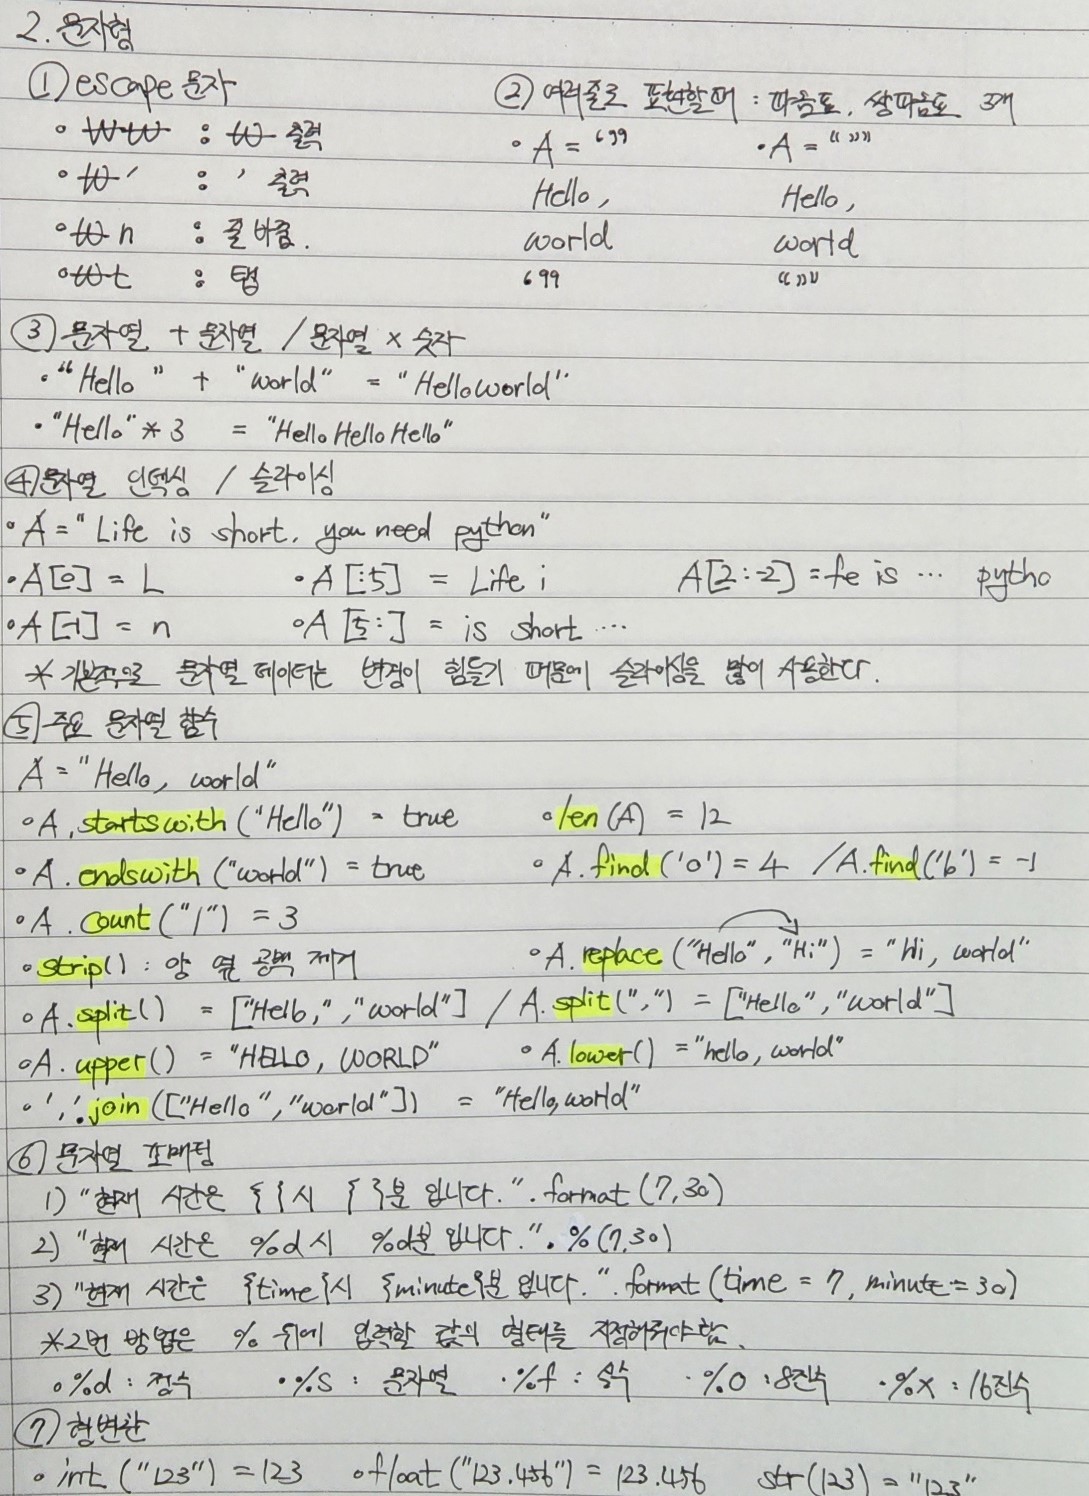 2. 문자형
① escape 문자
• ₩₩ : ₩ 출력
• ₩' : ' 출력
• ₩n : 줄바꿈.
• ₩t : 탭
② 여러줄로 표현할때 : 따음표, 쌍따음표 3개
• A = ‘’’ • A = “”””
Hello, Hello,
world world
‘’’ “”””
③ 문자열 + 문자열 / 문자열 × 숫자
• "Hello" + "world" = "Helloworld"
• "Hello" * 3 = "Hello Hello Hello"
④ 문자열 인덱싱 / 슬라이싱
• A = "Life is short, you need python"
• A[0] = L • A[:5] = Life i A[2:-2] = fe is ... pytho
• A[-1] = n • A[5:] = is short ...
* 기본적으로 문자열 데이터는 변경이 힘들기 때문에 슬라이싱을 많이 사용한다.
⑤ 주요 문자열 함수
A = "Hello, world"
• A.startswith("Hello") = true • len(A) = 12
• A.endswith("world") = true • A.find('o') = 4 / A.find('b') = -1
• A.count("l") = 3
• strip() : 양 옆 공백 제거 • A.replace("Hello", "Hi") = "Hi, world"
• A.split() = ["Hello,", "world"] / A.split(",") = ["Hello", "world"]
• A.upper() = "HELLO, WORLD" • A.lower() = "hello, world"
• ','.join(["Hello", "world"]) = "Hello,world"
⑥ 문자열 포매팅
1) "현재 시간은 { }시 { }분 입니다.".format(7,30)
2) "현재 시간은 %d시 %d분 입니다.".%(7,30)
3) "현재 시간은 {time}시 {minute}분 입니다.".format(time = 7, minute = 30)
*2번 방법은 % 뒤에 입력할 값의 형태를 지정해줘야함.
• %d : 정수 • %s : 문자열 • %f : 실수 • %o : 8진수 • %x : 16진수
⑦ 형변환
• int("123") = 123 • float("123.456") = 123.456 str(123) = "123"